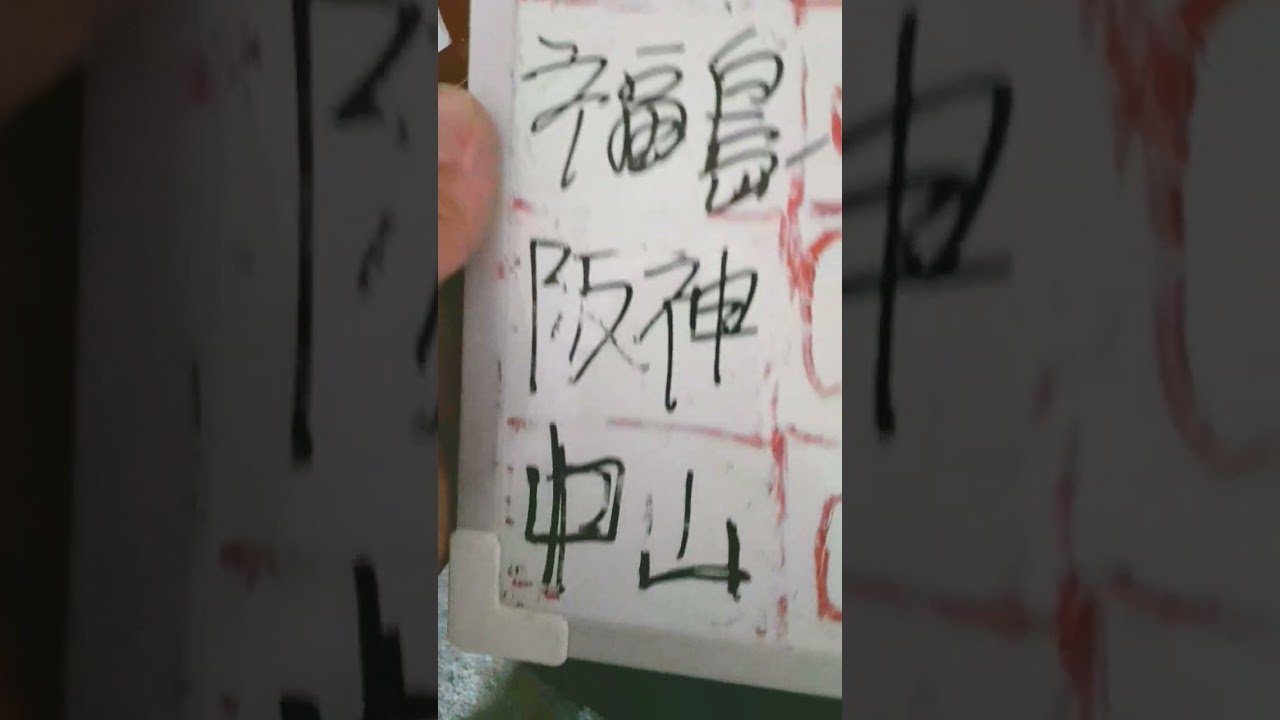 福島
阪神
中山